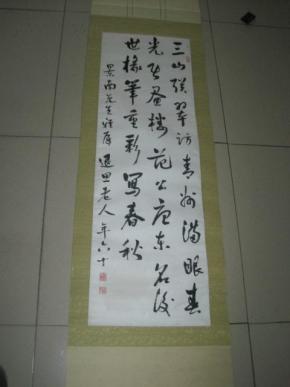 三山联翠访青州满眼春
光画楼范公东名后
世椽笔重彩写春秋
景南先生雅屏 退思老人年六十